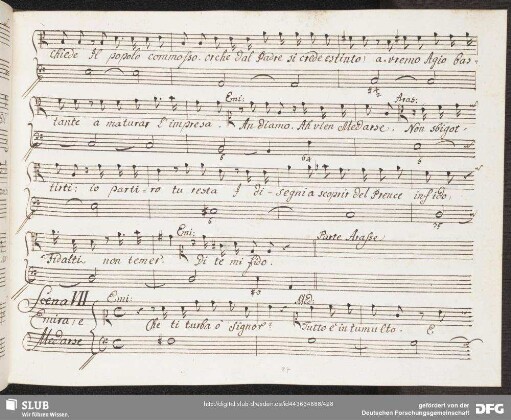 chiede Il popolo commosso. or che dal Padre si crede estinto: avremo Agio bas-
Emi: Aras:
tante a maturar l'impresa. Andiamo. Ah vien Medarse. Non sbigot-
tirti: io parti-ro tu resta I di-segni a scoprir del Prence infido;
Emi: Parte Arasse
Fidati non temer. Di te mi fido.
Scena VII Emi: Med:
Emira, e
Che ti turba o Signor? Tutto è in tumulto. E
Medarse
SLUB
Wir führen Wissen.
http://digital.slub-dresden.de/id443634866/428
gefördert von der
Deutschen Forschungsgemeinschaft
DFG